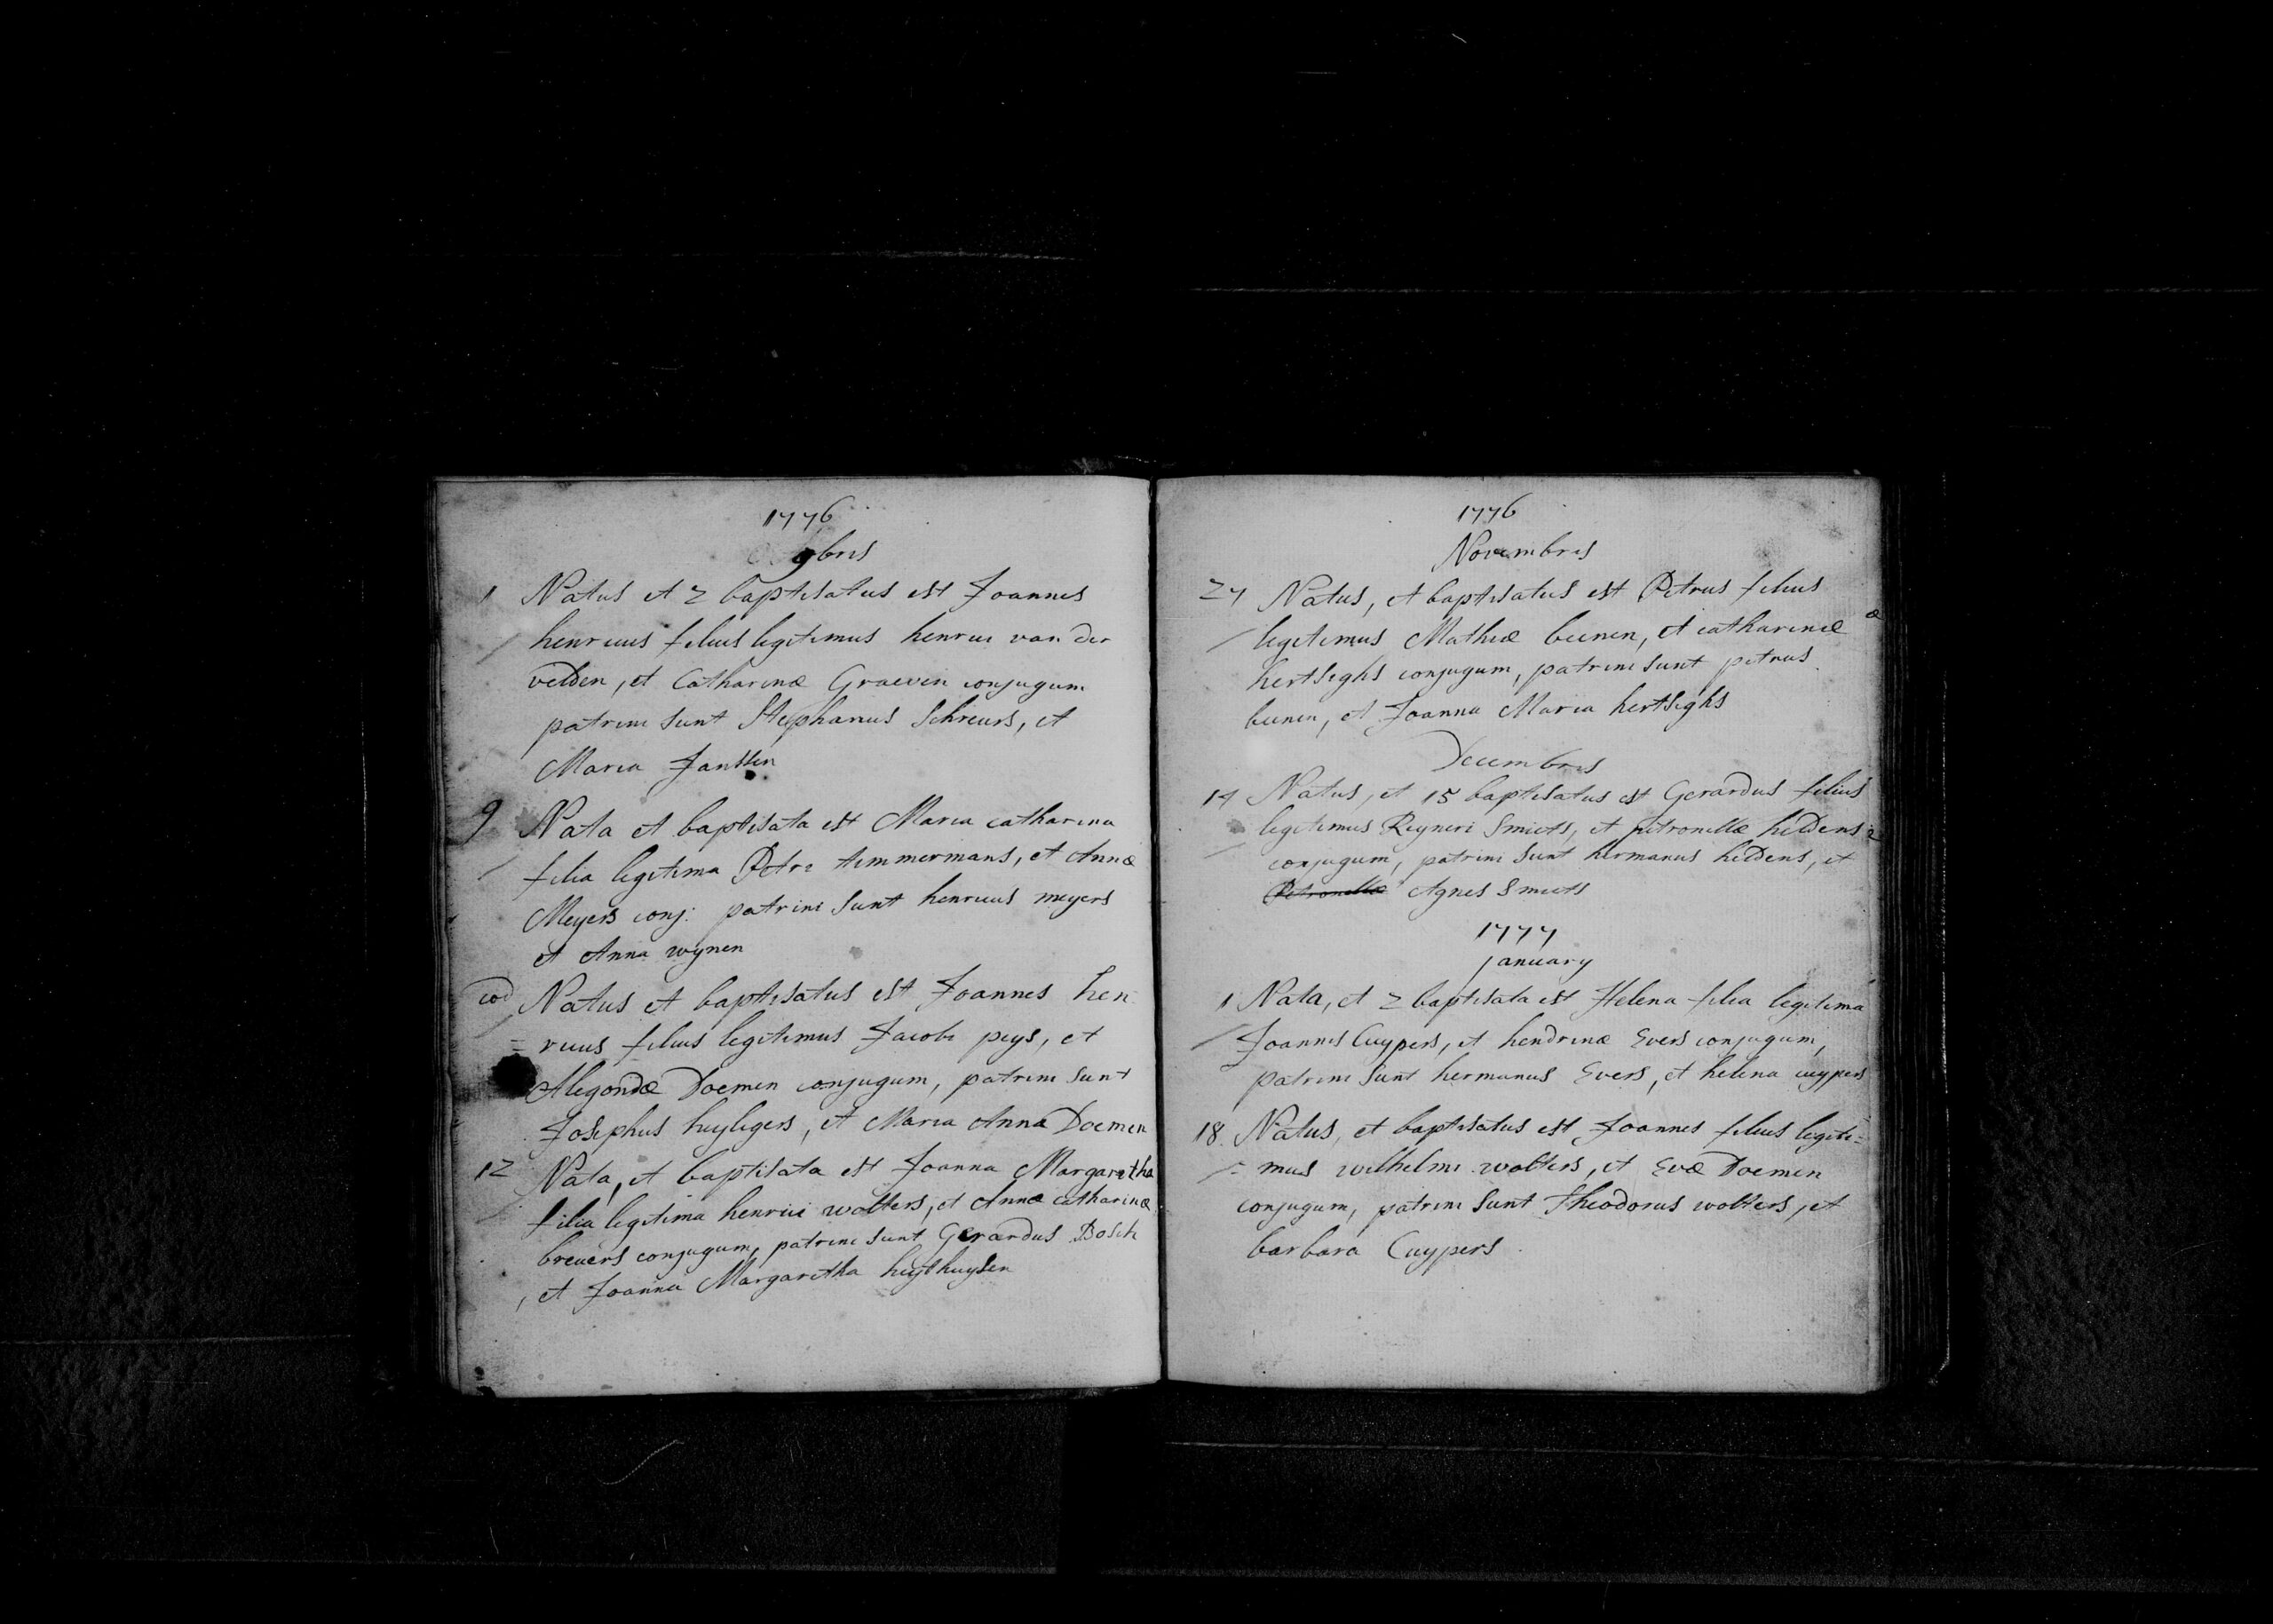 1776
9bris
1 Natus et 2 baptisatus est Joannes
henricus filius legitimus henrici van der
velden, et Catharinæ Graeven conjugum
patrini sunt Stephanus Schreurs, et
Maria Janssen
9 Nata et baptisata est Maria catharina
filia legitima Petri timmermans, et Annæ
Meyers conj: patrini sunt henricus meyers
et Anna wijnen
eod Natus et baptisatus est Joannes hen
= ricus filius legitimus Jacobi peys, et
Alegondæ Doemen conjugum, patrini sunt
Josephus huyligers, et Maria Anna Doemen
12 Nata, et baptisata est Joanna Margaretha
filia legitima henrici wolters, et Annæ catharinæ
breuers conjugum, patrini sunt Gerardus Bosch
, et Joanna Margaretha heijthuysen
1776
Novembris
27 Natus, et baptisatus est Petrus filius
legitimus Mathiæ beenen, et catharinæ æ
hertsighs conjugum, patrini sunt petrus
beenen, et Joanna Maria hertsighs
Decembris
14 Natus, et 15 baptisatus est Gerardus filius
legitimus Reyneri Smiets, et petronellæ hildens
conjugum, patrini sunt hermanus hildens, et
Petronellæ Agnes Smiets
1777
January
1 Nata, et 2 baptisata est Helena filia legitima
Joannis Cuypers, et hendrinæ Evers conjugum,
patrini sunt hermanus Evers, et helena cuypers
18. Natus, et baptisatus est Joannes filius legiti=
= mus wilhelmi wolters, et Evæ Doemen
conjugum, patrini sunt Theodorus wolters, et
barbara Cuypers.